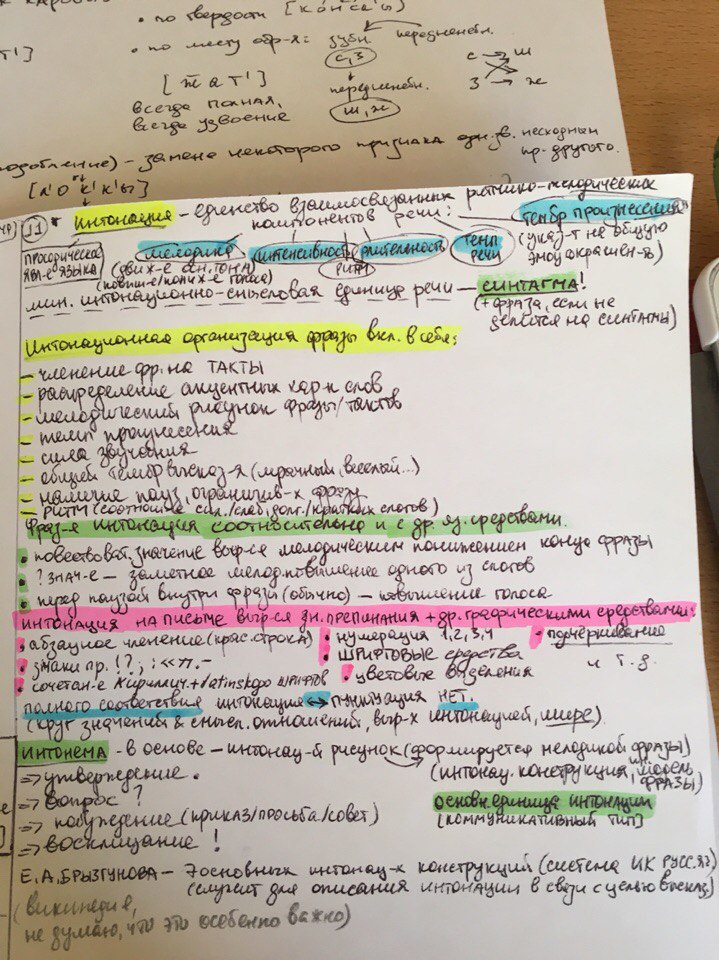 • по твердости [
• по месту обр-я: зубн передненебн.
с, з
с → ш
з ж
[м̄ а т']
передненебн.
ш, ж
всегда полная,
всегда узвоение
подобление) - замена некоторого признака одн. зв. несходным
пр. другого.
11
* интонация - единство взаимосвязанных ритмико-мелодических
компонентов речи:
тембр произнесения
просодическое
явл-е языка
мелодика интенсивность длительность темп речи
(указ-т на общую
эмоц окрашен-ь)
(движ-е осн. тона)
(повыш-е/пониж-е голоса)
ритм
мин. интонационно-смысловая единица речи — СИНТАГМА!
(+ фраза, если не
делится на синтагмы)
Интонационная организация фразы вкл. в себя:
- членение фр. на ТАКТЫ
- распределение акцентных хар-к слов
- мелодический рисунок фразы/тактов
- темп произнесения
- сила звучания
- общий тембр высказ-я (мрачный, веселый...)
- наличие пауз, ограничив-х фразу
- РИТМ (соотношение сил./слаб., долг./кратких слогов)
Фраз-я интонация соотносительна и с др. яз. средствами.
• повествоват. значение выр-ся мелодическим понижением конца фразы
• ? знач-е — заметное мелод. повышение одного из слогов
• перед паузой внутри фразы (обычно) — повышение голоса
интонация на письме выр-ся зн. препинания + др. графическими средствами:
• абзацное членение (крас. строка) • нумерация 1, 2, 3, 4 • подчёркивание
• знаки пр. !?, ; : «"», - • шрифтовые средства и т.д.
• сочетан-е кириллич. + latinskogo шрифтов • цветовые выделения
полного соответствия интонация ↔ пунктуация НЕТ.
(круг значений & смысл. отношений, выр-х интонацией, шире).
ИНТОНЕМА - в основе — интонац-й рисунок (формируется мелодикой фразы)
(интонац. конструкция, или модель
фразы)
⇒ утверждение .
⇒ вопрос ?
⇒ побуждение (приказ/просьба/совет)
⇒ восклицание !
основн. единица интонации
[коммуникативный тип]
Е. А. БРЫЗГУНОВА — 7 основных интонац-х конструкций (система ИК русс. яз)
(служит для описания интонации в связи с целью выскаж)
(википедия,
не думаю, что это особенно важно)